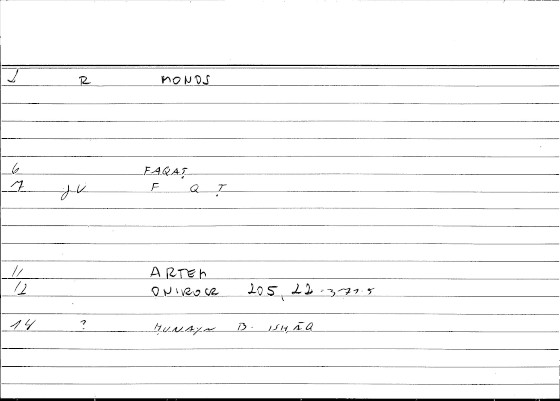 1 R MONDS
6 FAQAṬ
7 JV F Q Ṭ
11 ARTEM
12 ONIROCR 205, 22
14 ? ḤUNAYN B. ISḤĀQ